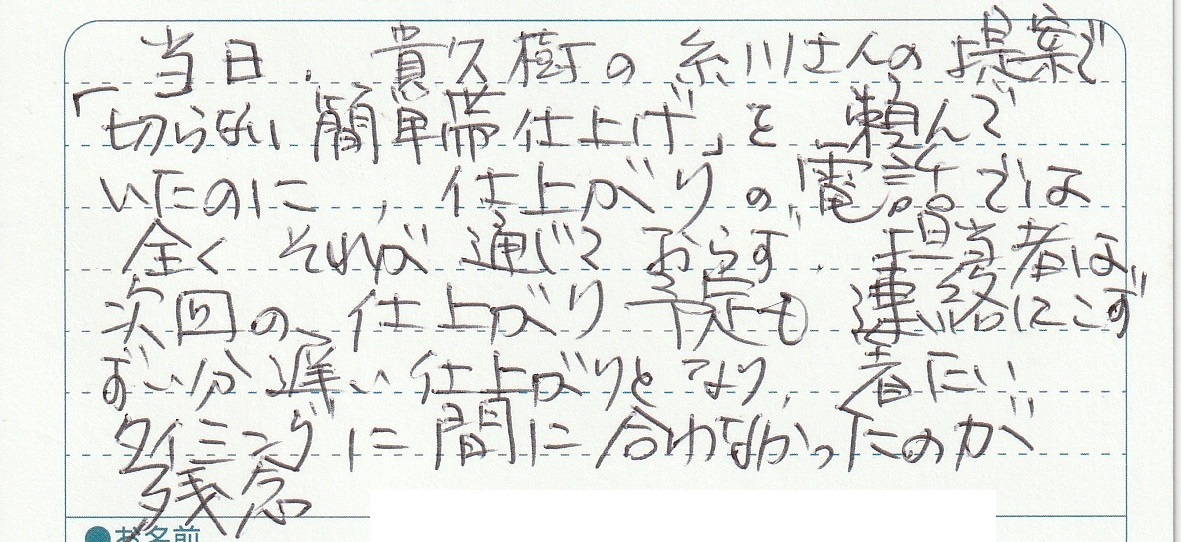 当日、貴久樹の糸川さんの提案で
「切らない簡単帯仕上げ」を頼んで
いたのに、仕上がりの電話では
全くそれが通じておらず、担当者は
次回の、仕上がり予定も連絡にこず
ずい分遅い仕上がりとなり、着たい
タイミングに間に合わなかったのが
残念
●お名前